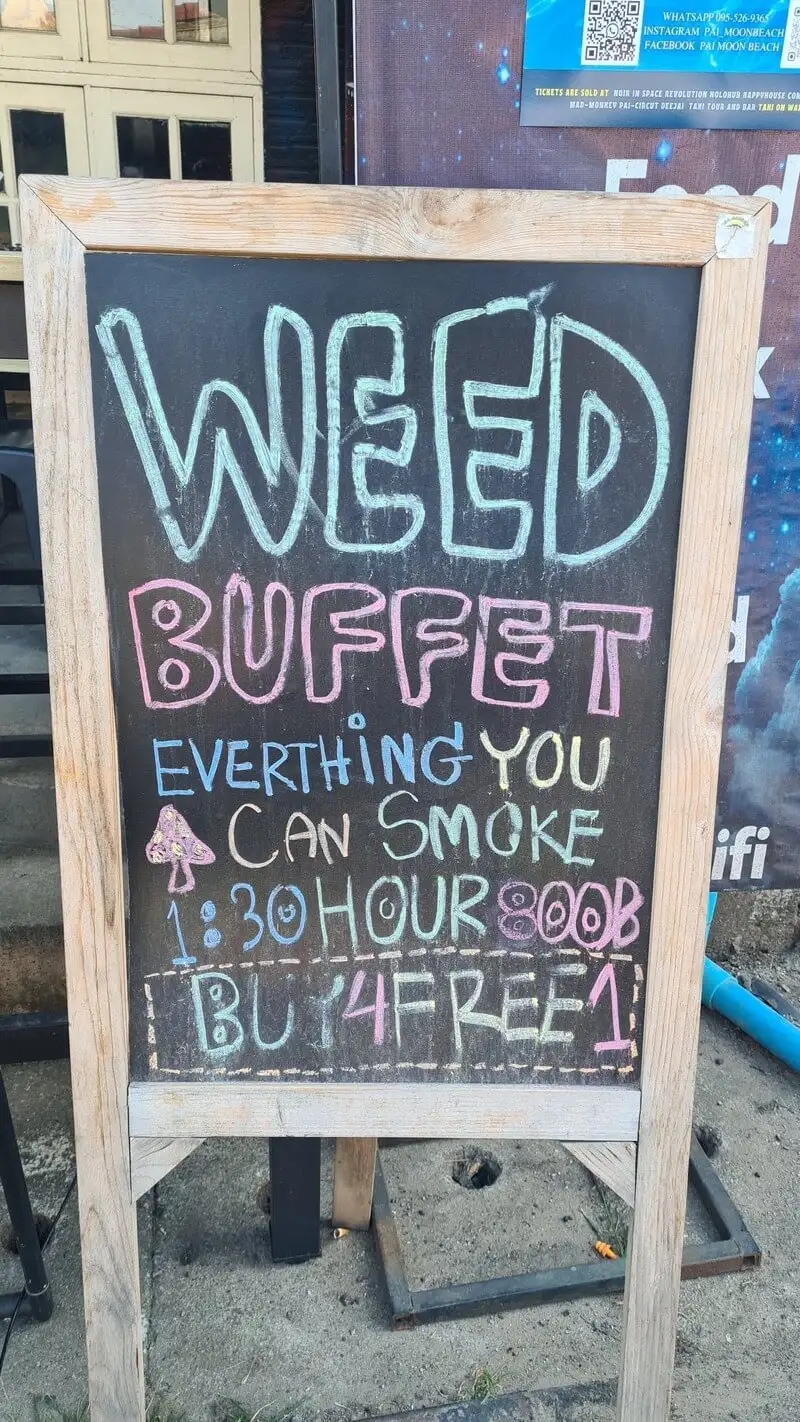 WHATSAPP 095-526-9365
INSTAGRAM PAI_MOONBEACH
FACEBOOK PAI MOON BEACH
TICKETS ARE SOLD AT NOIR IN SPACE REVOLUTION HOLOHUB HAPPYHOUSE
MAD-MONKEY PAI-CIRCUT DEEJAI TAXI TOUR AND BAR
Food
WEED
BUFFET
EVERTHING YOU
CAN SMOKE
1:30 HOUR 800B
BUY 4 FREE 1
ifi